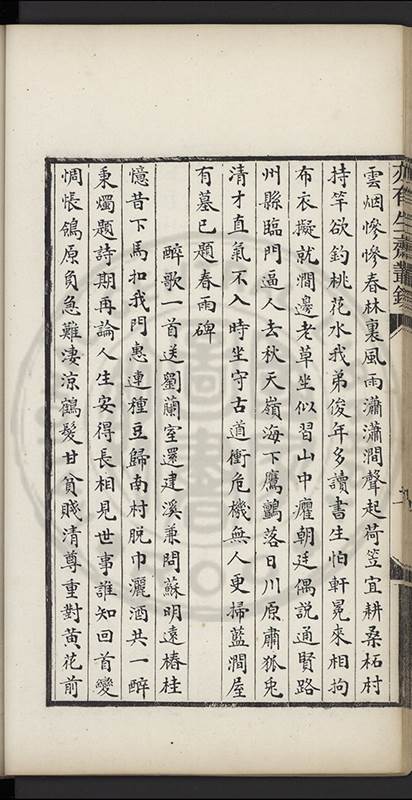 雲烟慘慘春林裏風雨瀟瀟澗聲起荷笠宜耕桑柘村
持竿欲釣桃花水我弟俊年多讀書生怕軒冕來相拘
布衣擬就澗邊老草坐似習山中癯朝廷偶說通賢路
州縣臨門逼人去秋天嶺海下鷹鸇落日川原肅狐兎
清才直氣不入時坐守古道衝危機無人更掃藍澗屋
有墓已題春雨碑
醉歌一首送劉蘭室還建溪兼問蘇明遠椿桂
憶昔下馬扣我門惠連種豆歸南村脫巾灑酒共一醉
秉燭題詩期再論人生安得長相見世事誰知回首變
惆悵鴒原負急難淒涼鶴髮甘貧賤清尊重對黃花前